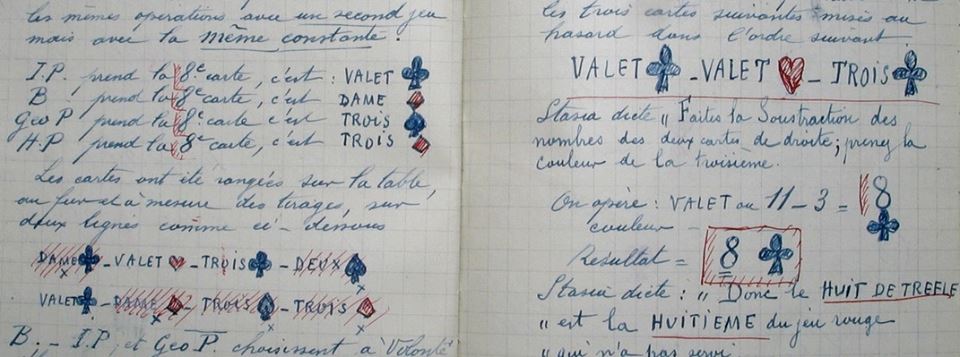 les mêmes opérations avec un second jeu
mais avec la même constante.
I.P. prend la 8e carte, c'est : VALET ♣
B. prend la 8e carte, c'est DAME ♦
Geo P prend la 8e carte c'est TROIS ♠
H.P prend la 8e carte, c'est TROIS ♦
Les cartes ont été rangées sur la table,
au fur et à mesure des tirages, sur
deux lignes comme ci-dessous
DAME ♣ - VALET ♥ - TROIS ♣ - DEUX ♠
x x
VALET ♣ - DAME ♦ - TROIS ♠ - TROIS ♦
x x x
B. - I.P. et Geo P. choisissent à volonté
les trois cartes suivantes mises au
hasard dans l'ordre suivant
VALET ♣ - VALET ♥ - TROIS ♣
Stasia dicte " Faites la Soustraction des
nombres des deux cartes de droite ; prenez la
couleur de la troisième.
On opère : VALET ou 11 - 3 = 8
couleur - ♣
Résultat = 8 ♣
Stasia dicte : " Donc le HUIT DE TREFLE
" est la HUITIEME du jeu rouge
" qui n'a pas servi